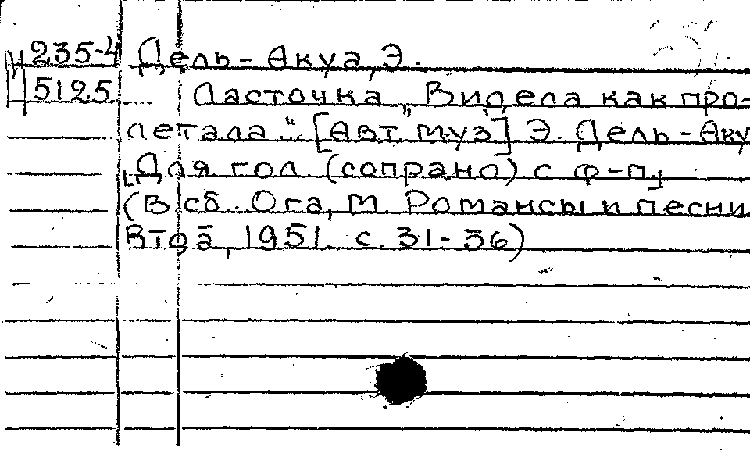 Ц 235-4 Дель-Акуа, Э.
5125 Ласточка „Видела как про-
летала“ [Авт. муз] Э. Дель-Аку
[Для гол (сопрано) с ф-п]
(В сб. Ога, М Романсы и песни
1951. с. 31-36)